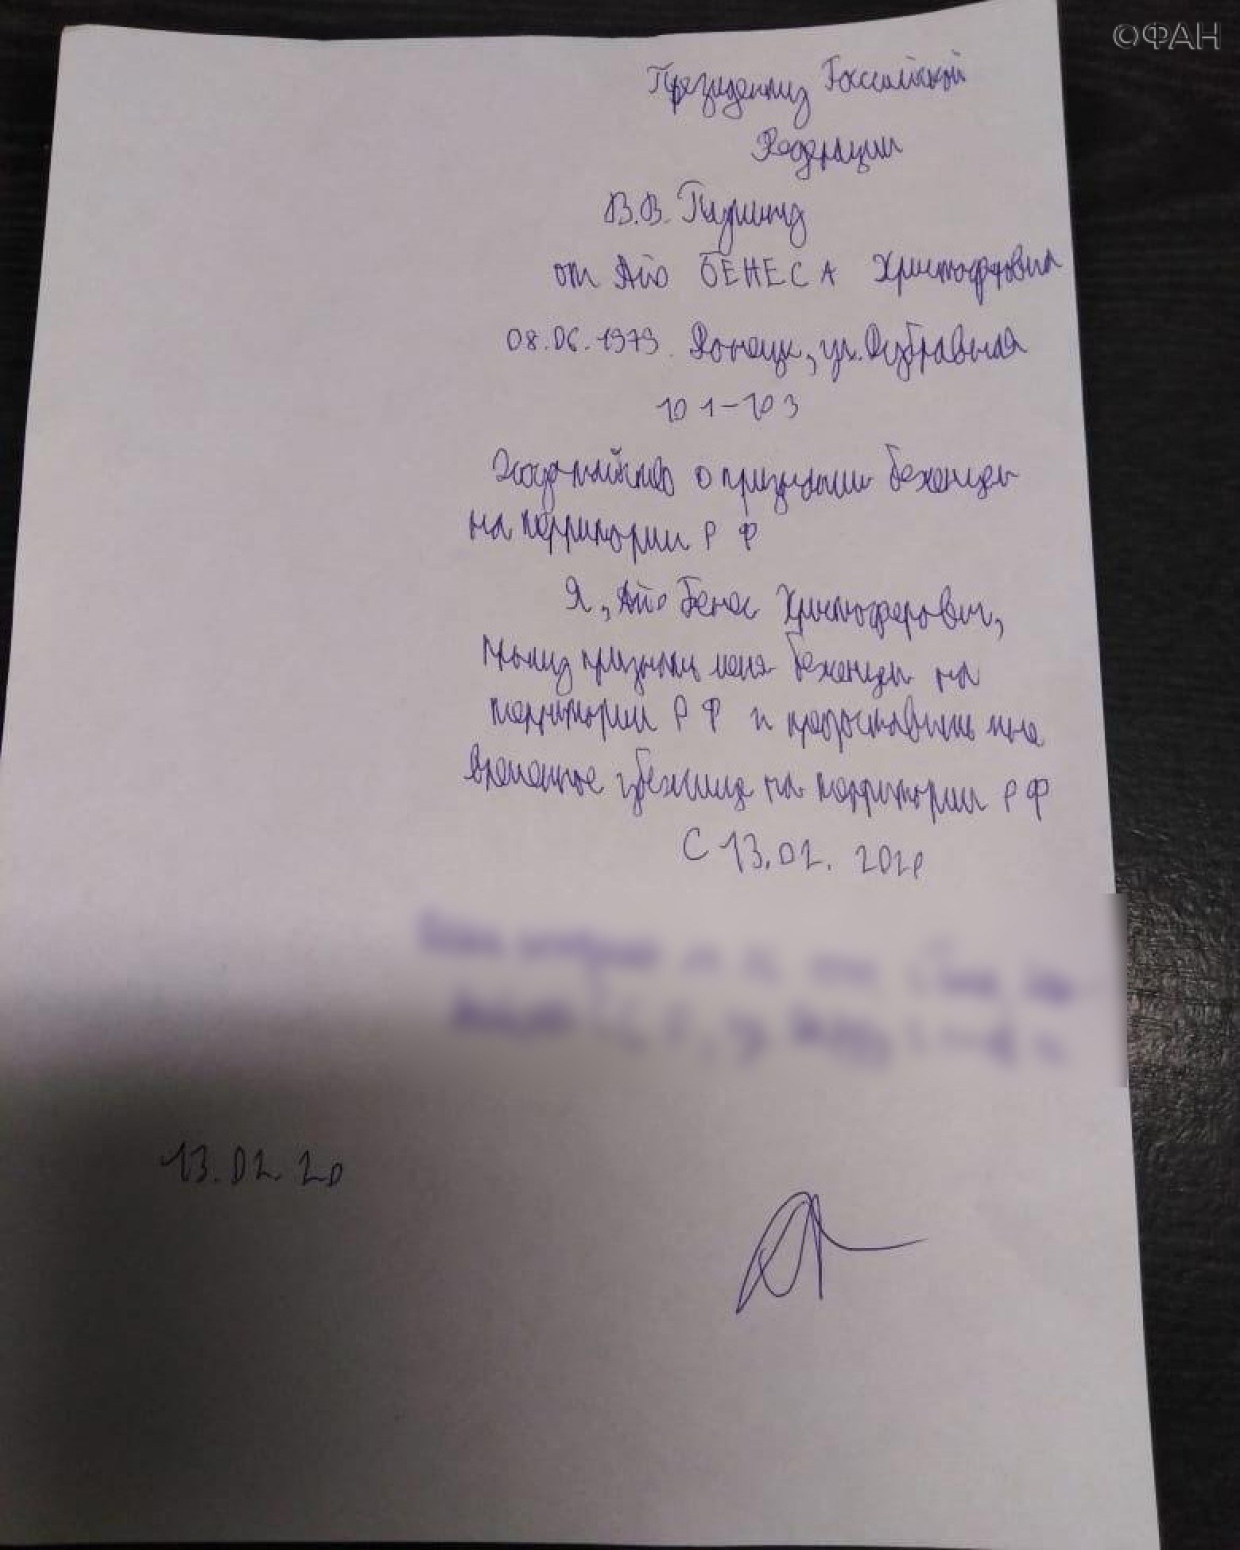 ©ФАН
Президенту Российской
Федерации
В.В. Путину
от Айо БЕНЕСА Христофоровича
08.06.1979. Донецк, ул. Дубравная
101-103
Ходатайство о признании беженцем
на территории РФ
Я, Айо Бенес Христоферович,
прошу признать меня беженцем на
территории РФ и предоставить мне
временное убежище на территории РФ
С 13.02. 2020
13.02.20